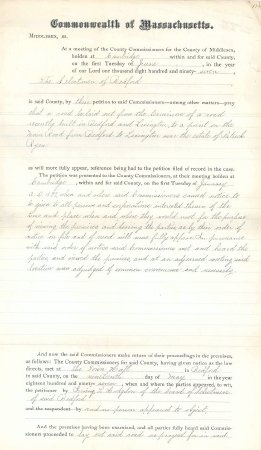 Commonwealth of Massachusetts.
MIDDLESEX, SS.
At a meeting of the County Commissioners for the County of Middlesex,
holden at Cambridge within and for said County,
on the first Tuesday of June in the year
of our Lord one thousand eight hundred and ninety-seven,
The Selectmen of Bedford
in said County, by their petition to said Commissioners—among other matters—pray
that a road be laid out from the terminus of a road
recently built in Bedford and Lexington to a point on the
Town Road from Bedford to Lexington near the estate of Patrick
Ryan
as will more fully appear, reference being had to the petition filed of record in the case.
The petition was presented to the County Commissioners, at their meeting holden at
Cambridge within and for said County, on the first Tuesday of January
A.D. 1897 when and where said Commissioners caused notice to
be given to all persons and corporations interested therein of the
time and place when and where they would meet for the purpose
of viewing the premises and hearing the parties as by their order of
notice on file and of record will more fully appear. In pursuance
with said order of notice said Commissioners met and heard the
parties and viewed the premises and at an adjourned meeting said
location was adjudged of common convenience and necessity.
And now the said Commissioners make return of their proceedings in the premises,
as follows: The County Commissioners for said County, having given notice as the
law directs, met at The Town Hall in Bedford
in said County, on the nineteenth day of May in the year
eighteen hundred and ninety-seven, when and where the parties appeared, to wit,
the petitioners by of the board of selectmen
of said Bedford
and the respondent by and no person appeared to object.
And the premises having been examined, and all parties fully heard said Commis-
sioners proceeded to lay out said road as prayed for in said